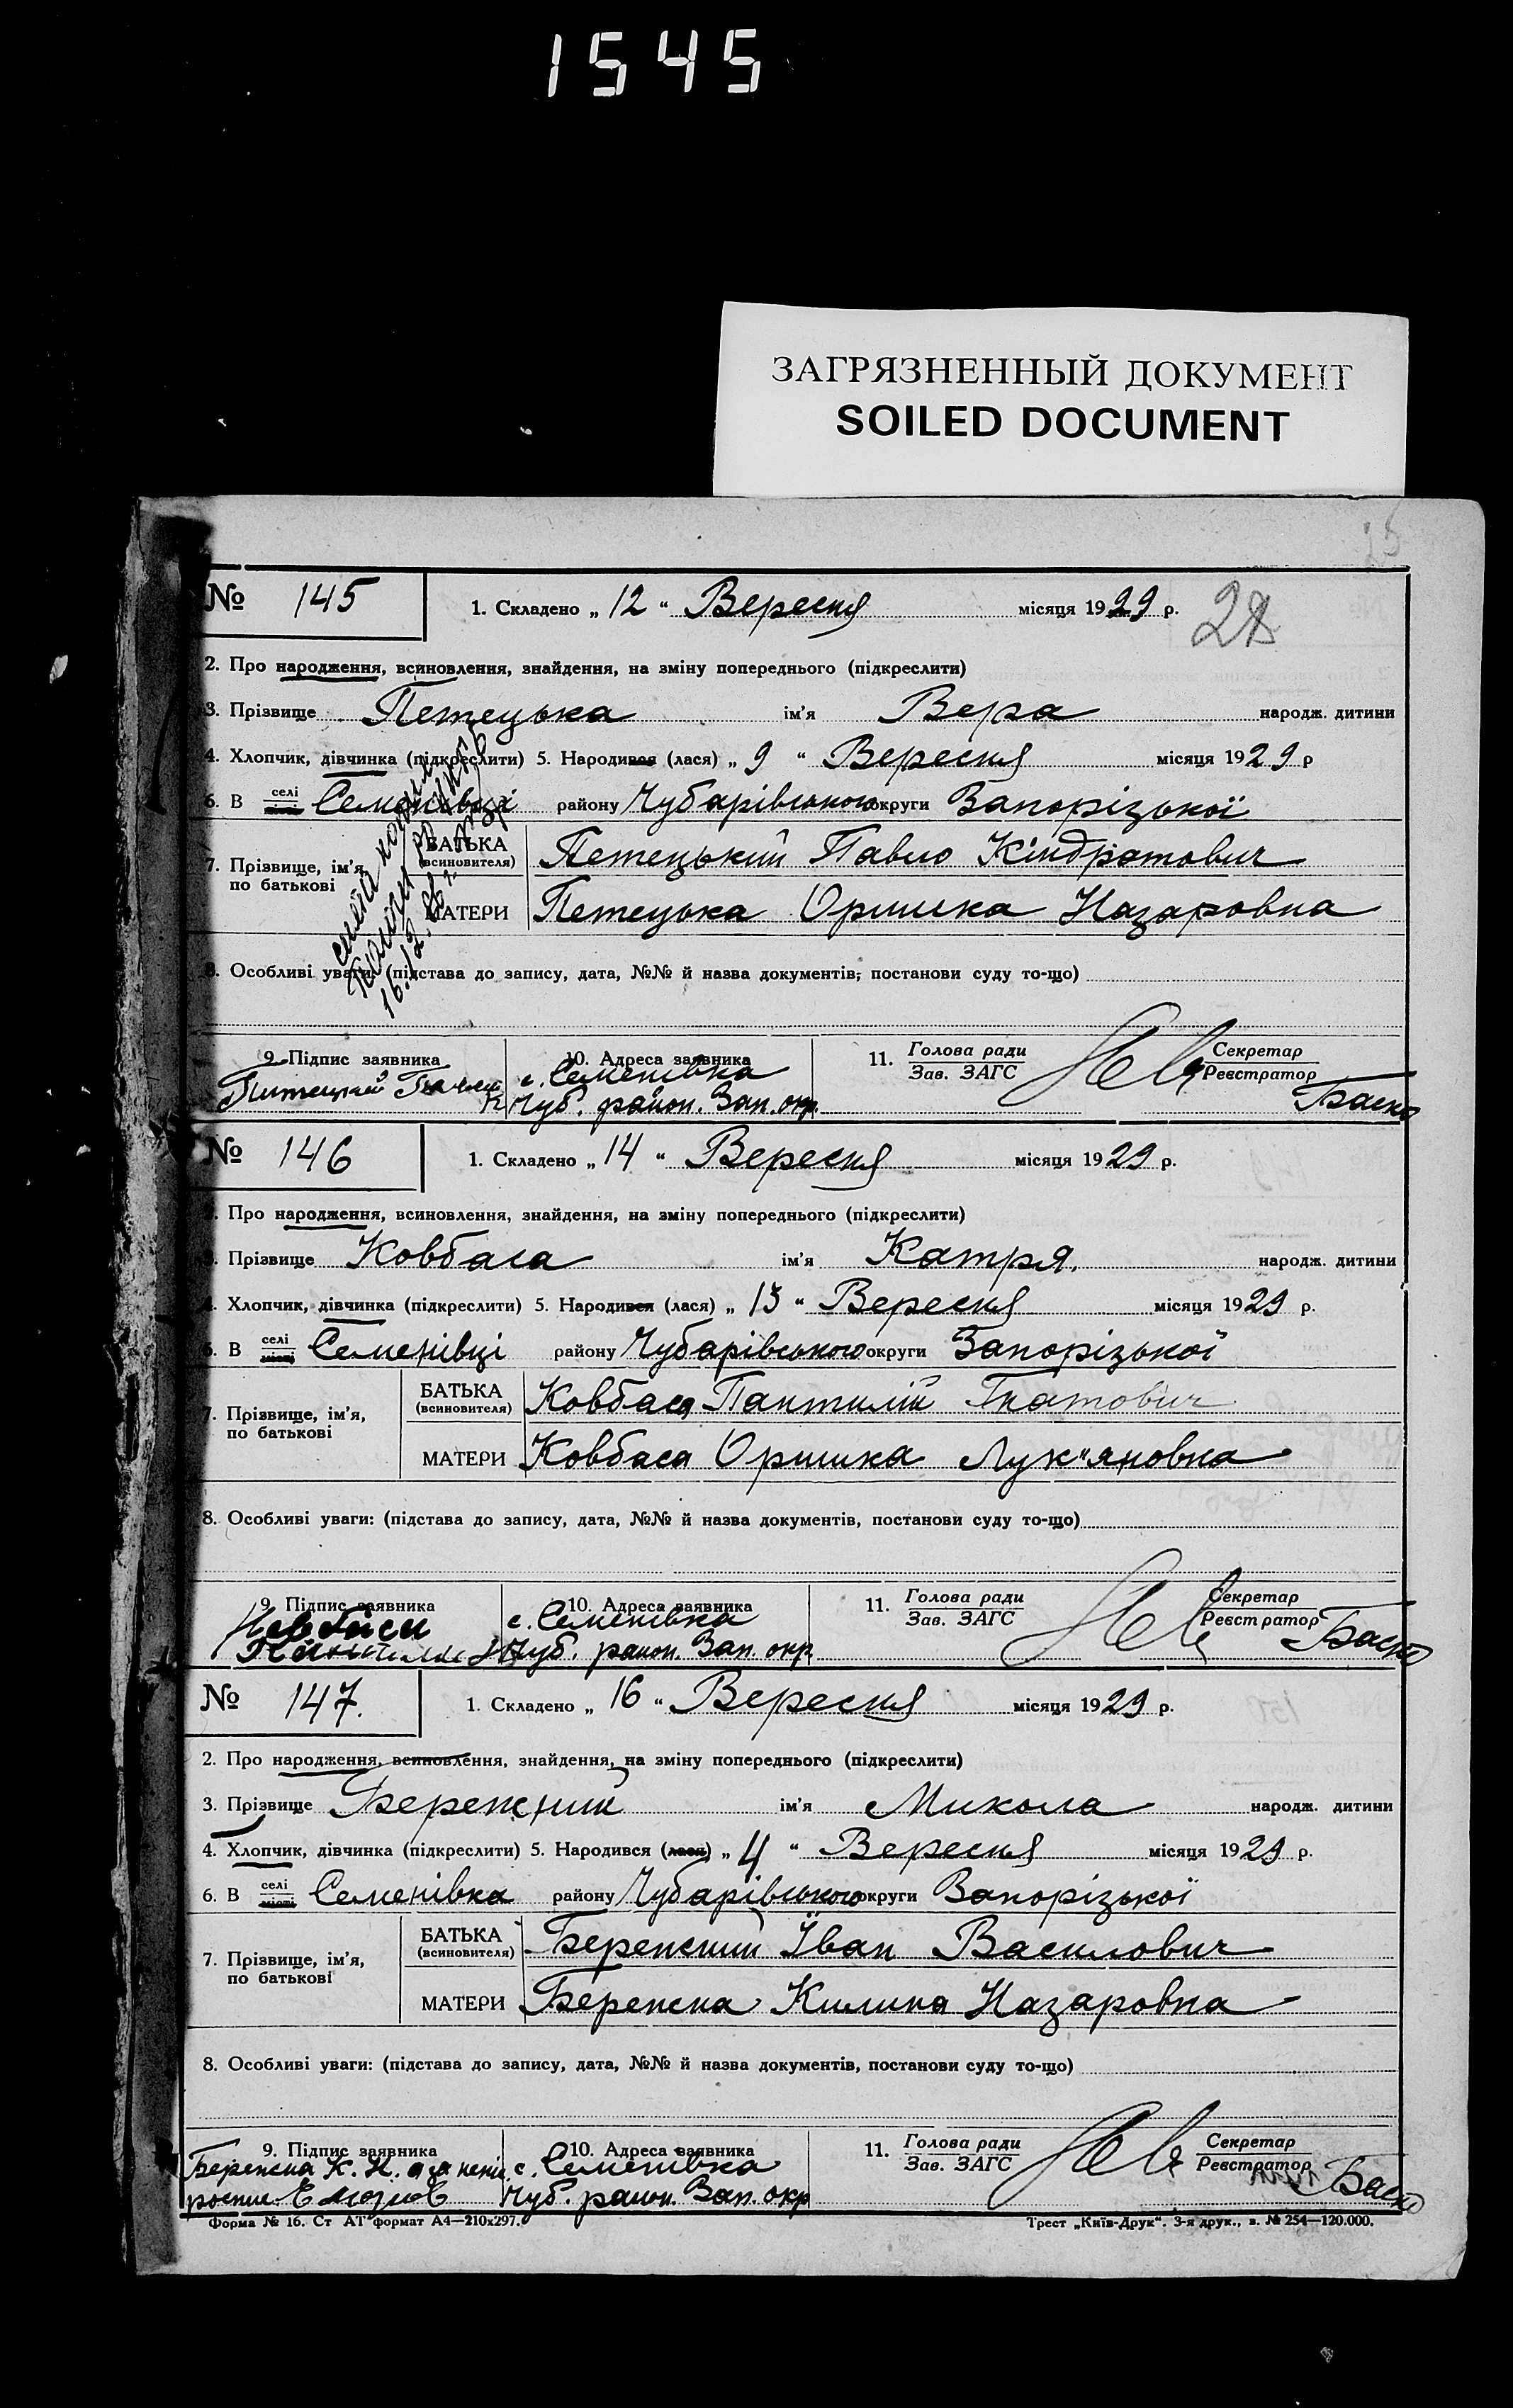 1545
ЗАГРЯЗНЕННЫЙ ДОКУМЕНТ
SOILED DOCUMENT
№ 145 1. Складено „ 12 “ Вересня місяця 1929 р. 28
2. Про народження, всиновлення, знайдення, на зміну попереднього (підкреслити)
3. Прізвище Петецька ім'я Вера народж. дитини
4. Хлопчик, дівчинка (підкреслити) 5. Народився (лася) „ 9 “ Вересня місяця 1929 р
6. В селі Семенівці району Чубарівського округи Запорізької
7. Прізвище, ім'я, по батькові БАТЬКА (всиновителя) Петецький Павло Кіндратович
МАТЕРИ Петецька Оришка Назаровна
16.12.
8. Особливі уваги: (підстава до запису, дата, №№ й назва документів, постанови суду то-що)
9. Підпис заявника 10. Адреса заявника 11. Голова ради Секретар
Зав. ЗАГС Реєстратор
с. Семенівка
Чуб. район. Зап. окр. Баско
№ 146 1. Складено „ 14 “ Вересня місяця 1929 р.
2. Про народження, всиновлення, знайдення, на зміну попереднього (підкреслити)
3. Прізвище Ковбаса ім'я Катря. народж. дитини
4. Хлопчик, дівчинка (підкреслити) 5. Народився (лася) „ 13 “ Вересня місяця 1929 р.
6. В селі місті Семенівці району Чубарівського округи Запорізької
7. Прізвище, ім'я, по батькові БАТЬКА (всиновителя) Ковбаса Пантилій Гнатович
МАТЕРИ Ковбаса Оришка Лук"яновна
8. Особливі уваги: (підстава до запису, дата, №№ й назва документів, постанови суду то-що)
9. Підпис заявника 10. Адреса заявника 11. Голова ради Секретар
Зав. ЗАГС Реєстратор
с. Семенівка
Чуб. район. Зап. окр. Баско
№ 147. 1. Складено „ 16 “ Вересня місяця 1929 р.
2. Про народження, всиновлення, знайдення, на зміну попереднього (підкреслити)
3. Прізвище Бережний ім'я Микола народж. дитини
4. Хлопчик, дівчинка (підкреслити) 5. Народився (лася) „ 4 “ Вересня місяця 1929 р.
6. В селі місті Семенівка району Чубарівського округи Запорізької
7. Прізвище, ім'я, по батькові БАТЬКА (всиновителя) Бережний Іван Василович
МАТЕРИ Бережна Килина Назаровна
8. Особливі уваги: (підстава до запису, дата, №№ й назва документів, постанови суду то-що)
9. Підпис заявника 10. Адреса заявника 11. Голова ради Секретар
Зав. ЗАГС Реєстратор
Бережна К. Н. а за с. Семенівка
Чуб. район. Зап. окр Баско
Форма № 16. Ст АТ формат А4—210х297. Трест „Київ-Друк“. 3-я друк., з. № 254—120.000.